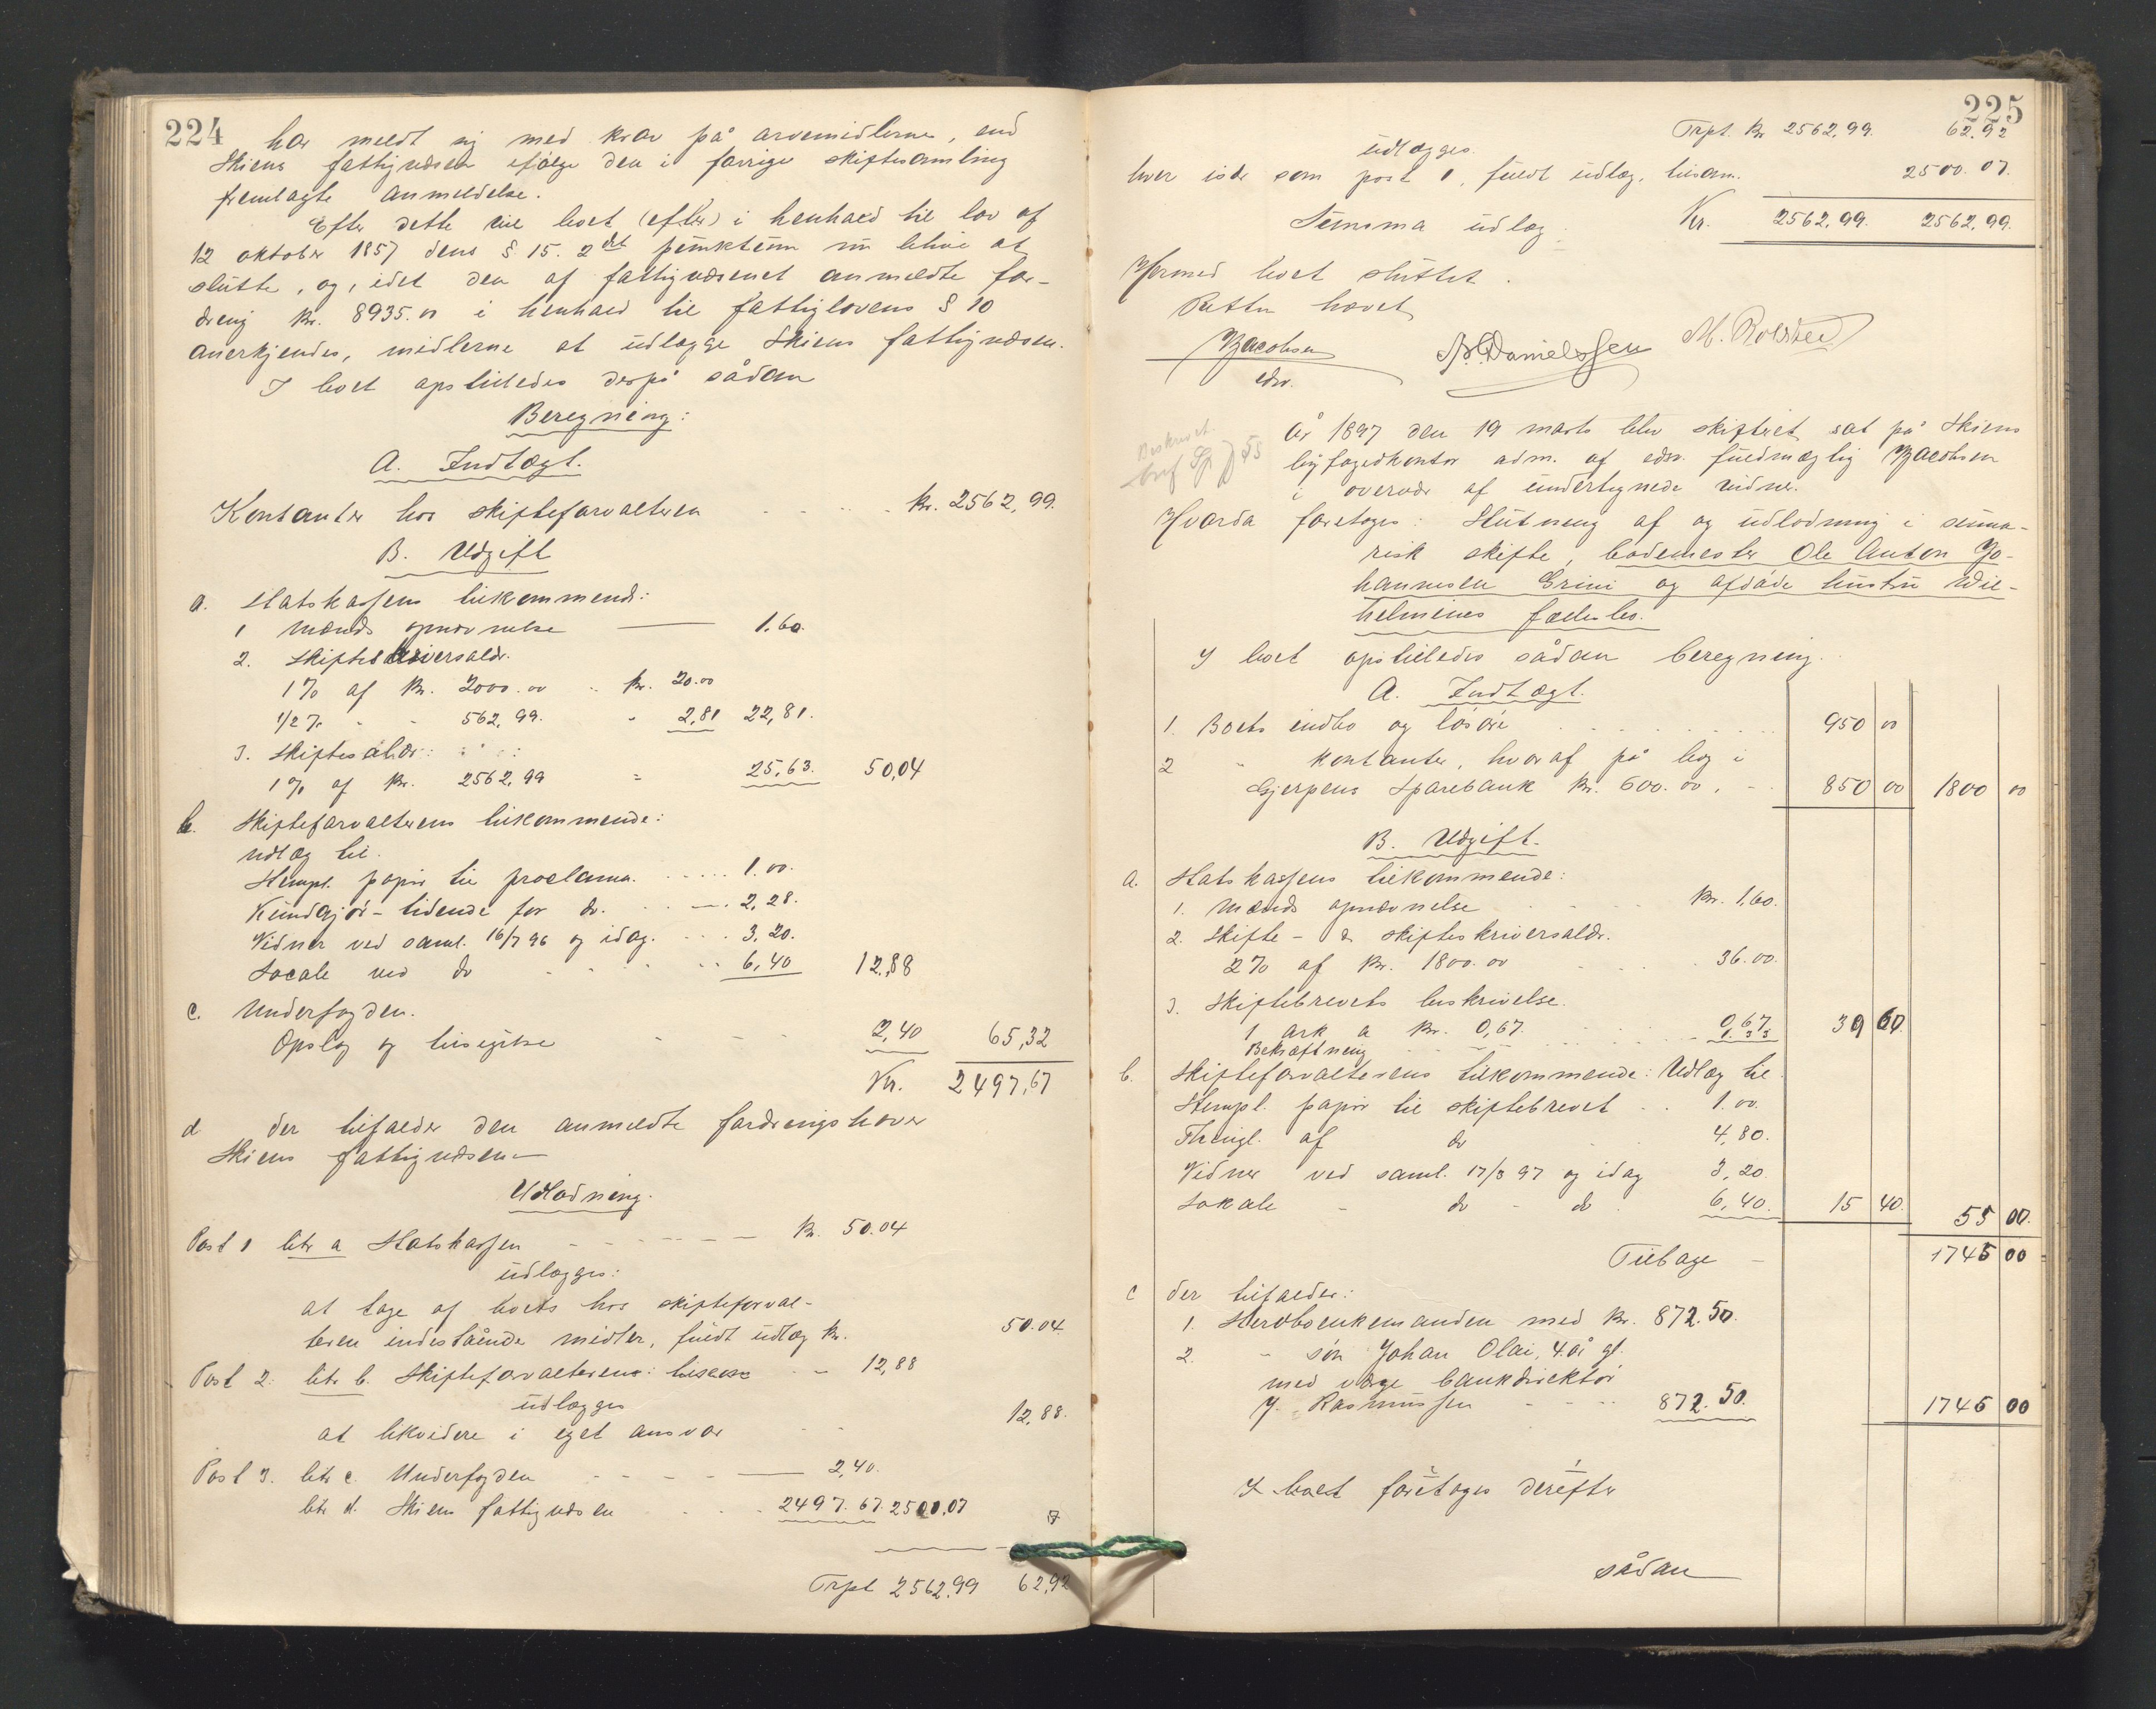 224
har meldt sig med krav på arvemidlerne, end
Skiens fattigvæsen ifølge den i forrige skiftesamling
fremlagte anmeldelse.
Efter dette vil boet (efter) i henhold til lov af
12 oktober 1857 dens § 15. 2det punktum nu blive at
slutte, og, idet den af fattigvæsenet anmeldte for-
dring kr. 8935.00 i henhold til fattiglovens § 10
anerkjendes, midlerne at udlægge Skiens fattigvæsen.
I boet opstilledes derpå sådan
Beregning:
A. Indtægt.
Kontanter hos skifteforvalteren - - - - kr. 2562,99.
B. Udgift
a. Statskassens tilkommende:
1 Mænds opnævnelse — 1.60.
2. Skifteskriversaldr.
1 % af kr. 2000.00 " kr. 20.00
1/2 % - - 562,99. " 2,81 22,81.
3. Skiftesaldr:
1 % af kr. 2562,99 = 25,63. 50,04
b. Skifteforvalterens tilkommende:
Udlæg til.
Stempl. papir til proclama. . . . . . 1.00.
Kundgjør-tidende for do. . . —. 2,28.
Vidner ved saml. 16/7 96 og idag. . . . 3,20.
Locale ved do . . . . . 6,40 12,88
c. Underfogden.
Opslag og tilsigelse - - - 2,40 65,32
Kr. 2497,67
d der tilfalder den anmeldte fordringshaver
Skiens fattigvæsen —
Udlodning.
Post 1 litr a Statskassen - - - - - - kr. 50.04
udlægges:
at tage af boets hos skifteforval-
teren indestående midler, fuldt udlæg kr. 50.04.
Post 2. litr b. Skifteforvalterens: tilkom - - 12,88
udlægges
at likvidere i eget ansvar - - 12,88.
Post 3. litr c. Underfogden - - - - — 2,40.
litr d. Skiens fattigvæsen . . . 2497.67. 2500,07
Trpt 2562.99 62,92
225
Trpt. kr 2562,99. 62,92
udlægges.
hver især som post 1, fuldt udlæg, tilsam. 2500.07.
Summa udlæg: Kr. 2562,99. 2562,99.
Hermed boet sluttet.
Retten hævet
Jacobsen
edsv.
N. Danielssen M. Rolsted
Beskrevet.
År 1897 den 19 marts blev skifteret sat på Skiens
byfogedkontor adm. af edsv. fuldmægtig Jacobsen
i overvær af undertegnede vidner.
Hvorda foretoges: Slutning af og udlodning i summa-
risk skifte, bademester Ole Anton Jo-
hannesen Grini og afdøde hustru Wil-
helmines fællesbo.
I boet opstilledes sådan beregning.
A. Indtægt.
1. Boets indbo og løsøre . . . . . . 950 00
2 " kontanter, hvoraf på bog i
Gjerpens Sparebank kr. 600.00. - - 850 00 1800 00
B. Udgift.
a. Statskassens tilkommende:
1. Mænds opnævnelse - - - kr. 1,60.
2. Skifte- & skifteskriversaldr.
2 % af kr. 1800.00 . . . . 36.00.
3. Skiftebrevets beskrivelse.
1 ark a kr. 0,67. . . . . 0,67
Bekræftning . . . . . . . 1.33 39 60.
b. Skifteforvalterens tilkommende: Udlæg til.
Stempl. papir til skiftebrevet . . 1.00.
Thingl. af do . . 4,80.
Vidner ved saml. 17/3 97 og idag 3,20.
Lokale - do - do . 6,40. 15 40. 55 00.
Tilbage — 1745 00
c der tilfalder:
1. Stervboenkemanden med kr. 872.50.
2. - søn Johan Olai, 4 år gl.
med værge bankdirektør
J. Rasmussen - - - - 872.50. 1745 00
I boet foretoges derefter
sådan